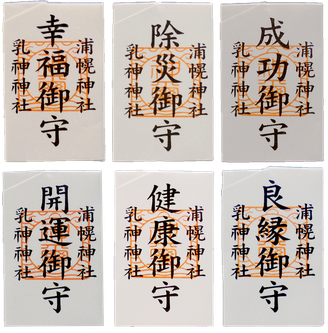 浦幌神社
幸福御守
乳神神社
浦幌神社
除災御守
乳神神社
浦幌神社
成功御守
乳神神社
浦幌神社
開運御守
乳神神社
浦幌神社
健康御守
乳神神社
浦幌神社
良縁御守
乳神神社